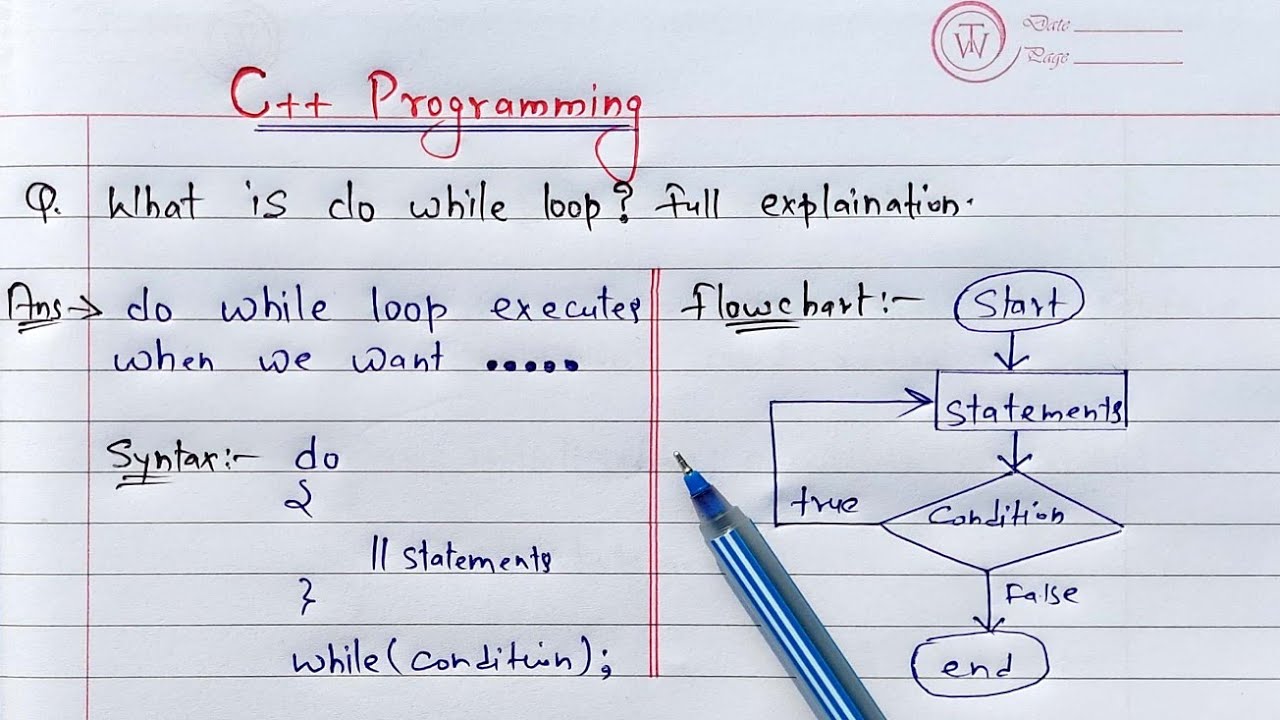 TW
Date
Page
C++ Programming
Q. What is do while loop? full explaination.
Ans → do while loop executes
when we want •••••
Syntax:- do
{
// statements
}
while(condition);
flowchart:-
Start
Statements
true
Condition
False
end